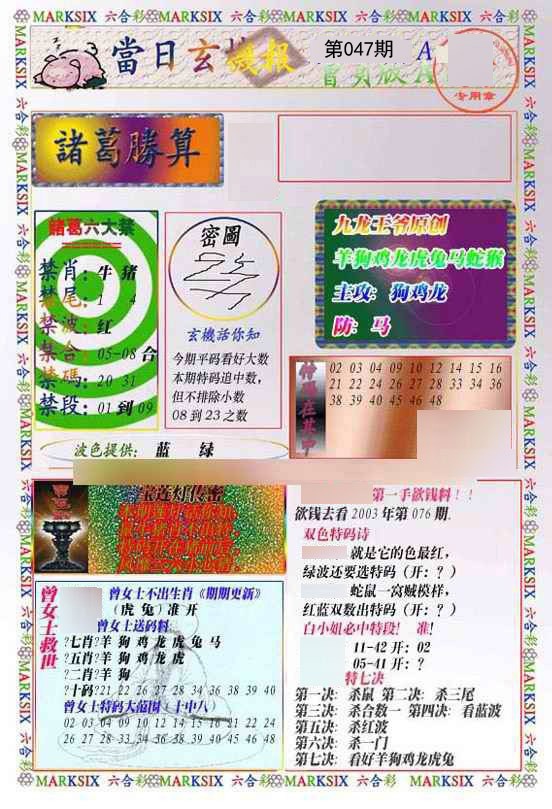 MARKSIX 六合彩 MARKSIX 六合彩 MARKSIX 六合彩 MARKSIX 六合彩 MARKSIX
當日玄機报
第047期
A
专用章
諸葛勝算
諸葛六大禁
禁肖：牛 猪
禁尾：1 4
禁波：红
禁合：05-08 合
禁碼：20 31
禁段：01 到 09
密圖
玄機话你知
今期平码看好大数
本期特码追中数，
但不排除小数
08 到 23 之数
九龙王爷原创
羊狗鸡龙虎兔马蛇猴
主攻：狗鸡龙
防：马
02 03 04 09 10 12 14 15 16
21 22 24 26 27 28 33 34 36
38 39 40 45 46 48
波色提供： 蓝 绿
宝莲灯传密
第一手欲钱料！！
欲钱去看 2003 年第 076 期.
双色特码诗
就是它的色最红，
绿波还要选特码（开：？）
蛇鼠一窝贼模样，
红蓝双数出特码（开：？）
白小姐必中特段！ 准！
11-42 开：02
05-41 开：？
特七决
第一决：杀鼠 第二决：杀三尾
第三决：杀合数一 第四决：看蓝波
第五决：杀红波
第六决：杀一门
第七决：看好羊狗鸡龙虎兔
曾女士救世
曾女士不出生肖《期期更新》
（虎 兔）准 开
曾女士送码料：
?七肖?羊 狗 鸡 龙 虎 兔 马
?五肖?羊 狗 鸡 龙 虎
?二肖?羊 狗
?十码?21 22 26 27 28 34 36 38 39 40
曾女士特码大范围（十中八）
02 03 04 09 10 12 14 15 16 18 21 22 24
26 27 28 33 34 36 38 39 40 45 46 48
MARKSIX 六合彩 MARKSIX 六合彩 MARKSIX 六合彩 MARKSIX 六合彩 MARKSIX